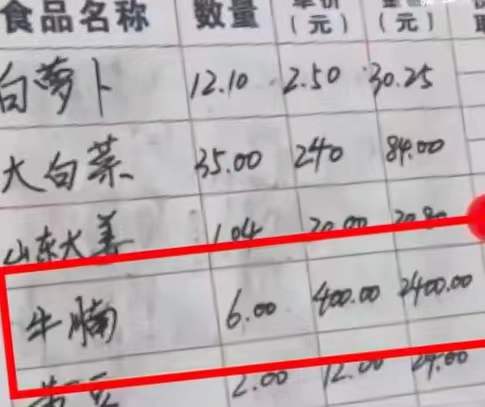 食品名称 数量 单价 金额
（元） （元）
白萝卜 12.10 2.50 30.25
大白菜 35.00 240 84.00
山东大姜 1.04 20.00 20.80
牛腩 6.00 400.00 2400.00
2.00 12.00 24.00